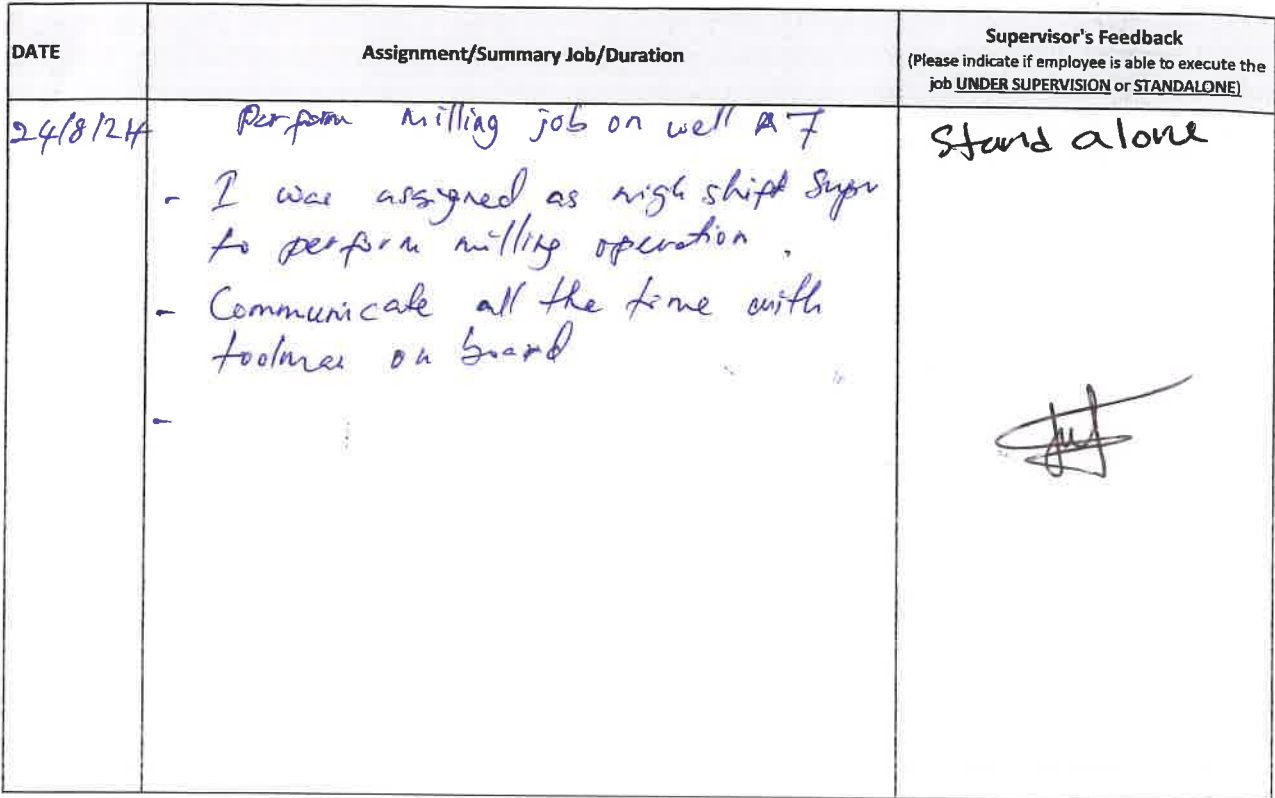 DATE
Assignment/Summary Job/Duration
Supervisor's Feedback
(Please indicate if employee is able to execute the
job UNDER SUPERVISION or STANDALONE)
24/8/24
Perform milling job on well A7
- I was assigned as nigh shift Supv
to perform milling operation.
- Communicate all the time with
toolman on board
-
Stand alone